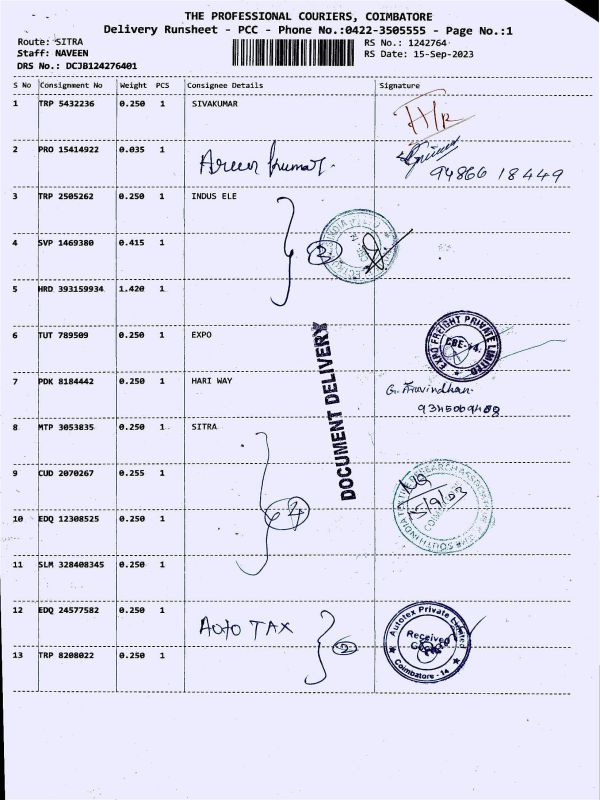 THE PROFESSIONAL COURIERS, COIMBATORE
Delivery Runsheet - PCC - Phone No.:0422-3505555 - Page No.:1
Route: SITRA RS No.: 1242764
Staff: NAVEEN RS Date: 15-Sep-2023
DRS No.: DCJB124276401
S No Consignment No Weight PCS Consignee Details Signature
1 TRP 5432236 0.250 1 SIVAKUMAR
2 PRO 15414922 0.035 1 Arun kumar.
94866 18449
3 TRP 2505262 0.250 1 INDUS ELE
4 SVP 1469380 0.415 1 3
5 HRD 393159934 1.420 1
6 TUT 789509 0.250 1 EXPO EXPO FREIGHT PRIVATE LIMITED
CBE-14.
DOCUMENT DELIVERY
7 PDK 8184442 0.250 1 HARI WAY G. Aravindhan
8 MTP 3053835 0.250 1 SITRA
9 CUD 2070267 0.255 1
10 EDQ 12308525 0.250 1 4
11 SLM 328408345 0.250 1
12 EDQ 24577582 0.250 1 Auto TAX Autotex Private Limited
Received
Coimbatore - 14
13 TRP 8208022 0.250 1 2